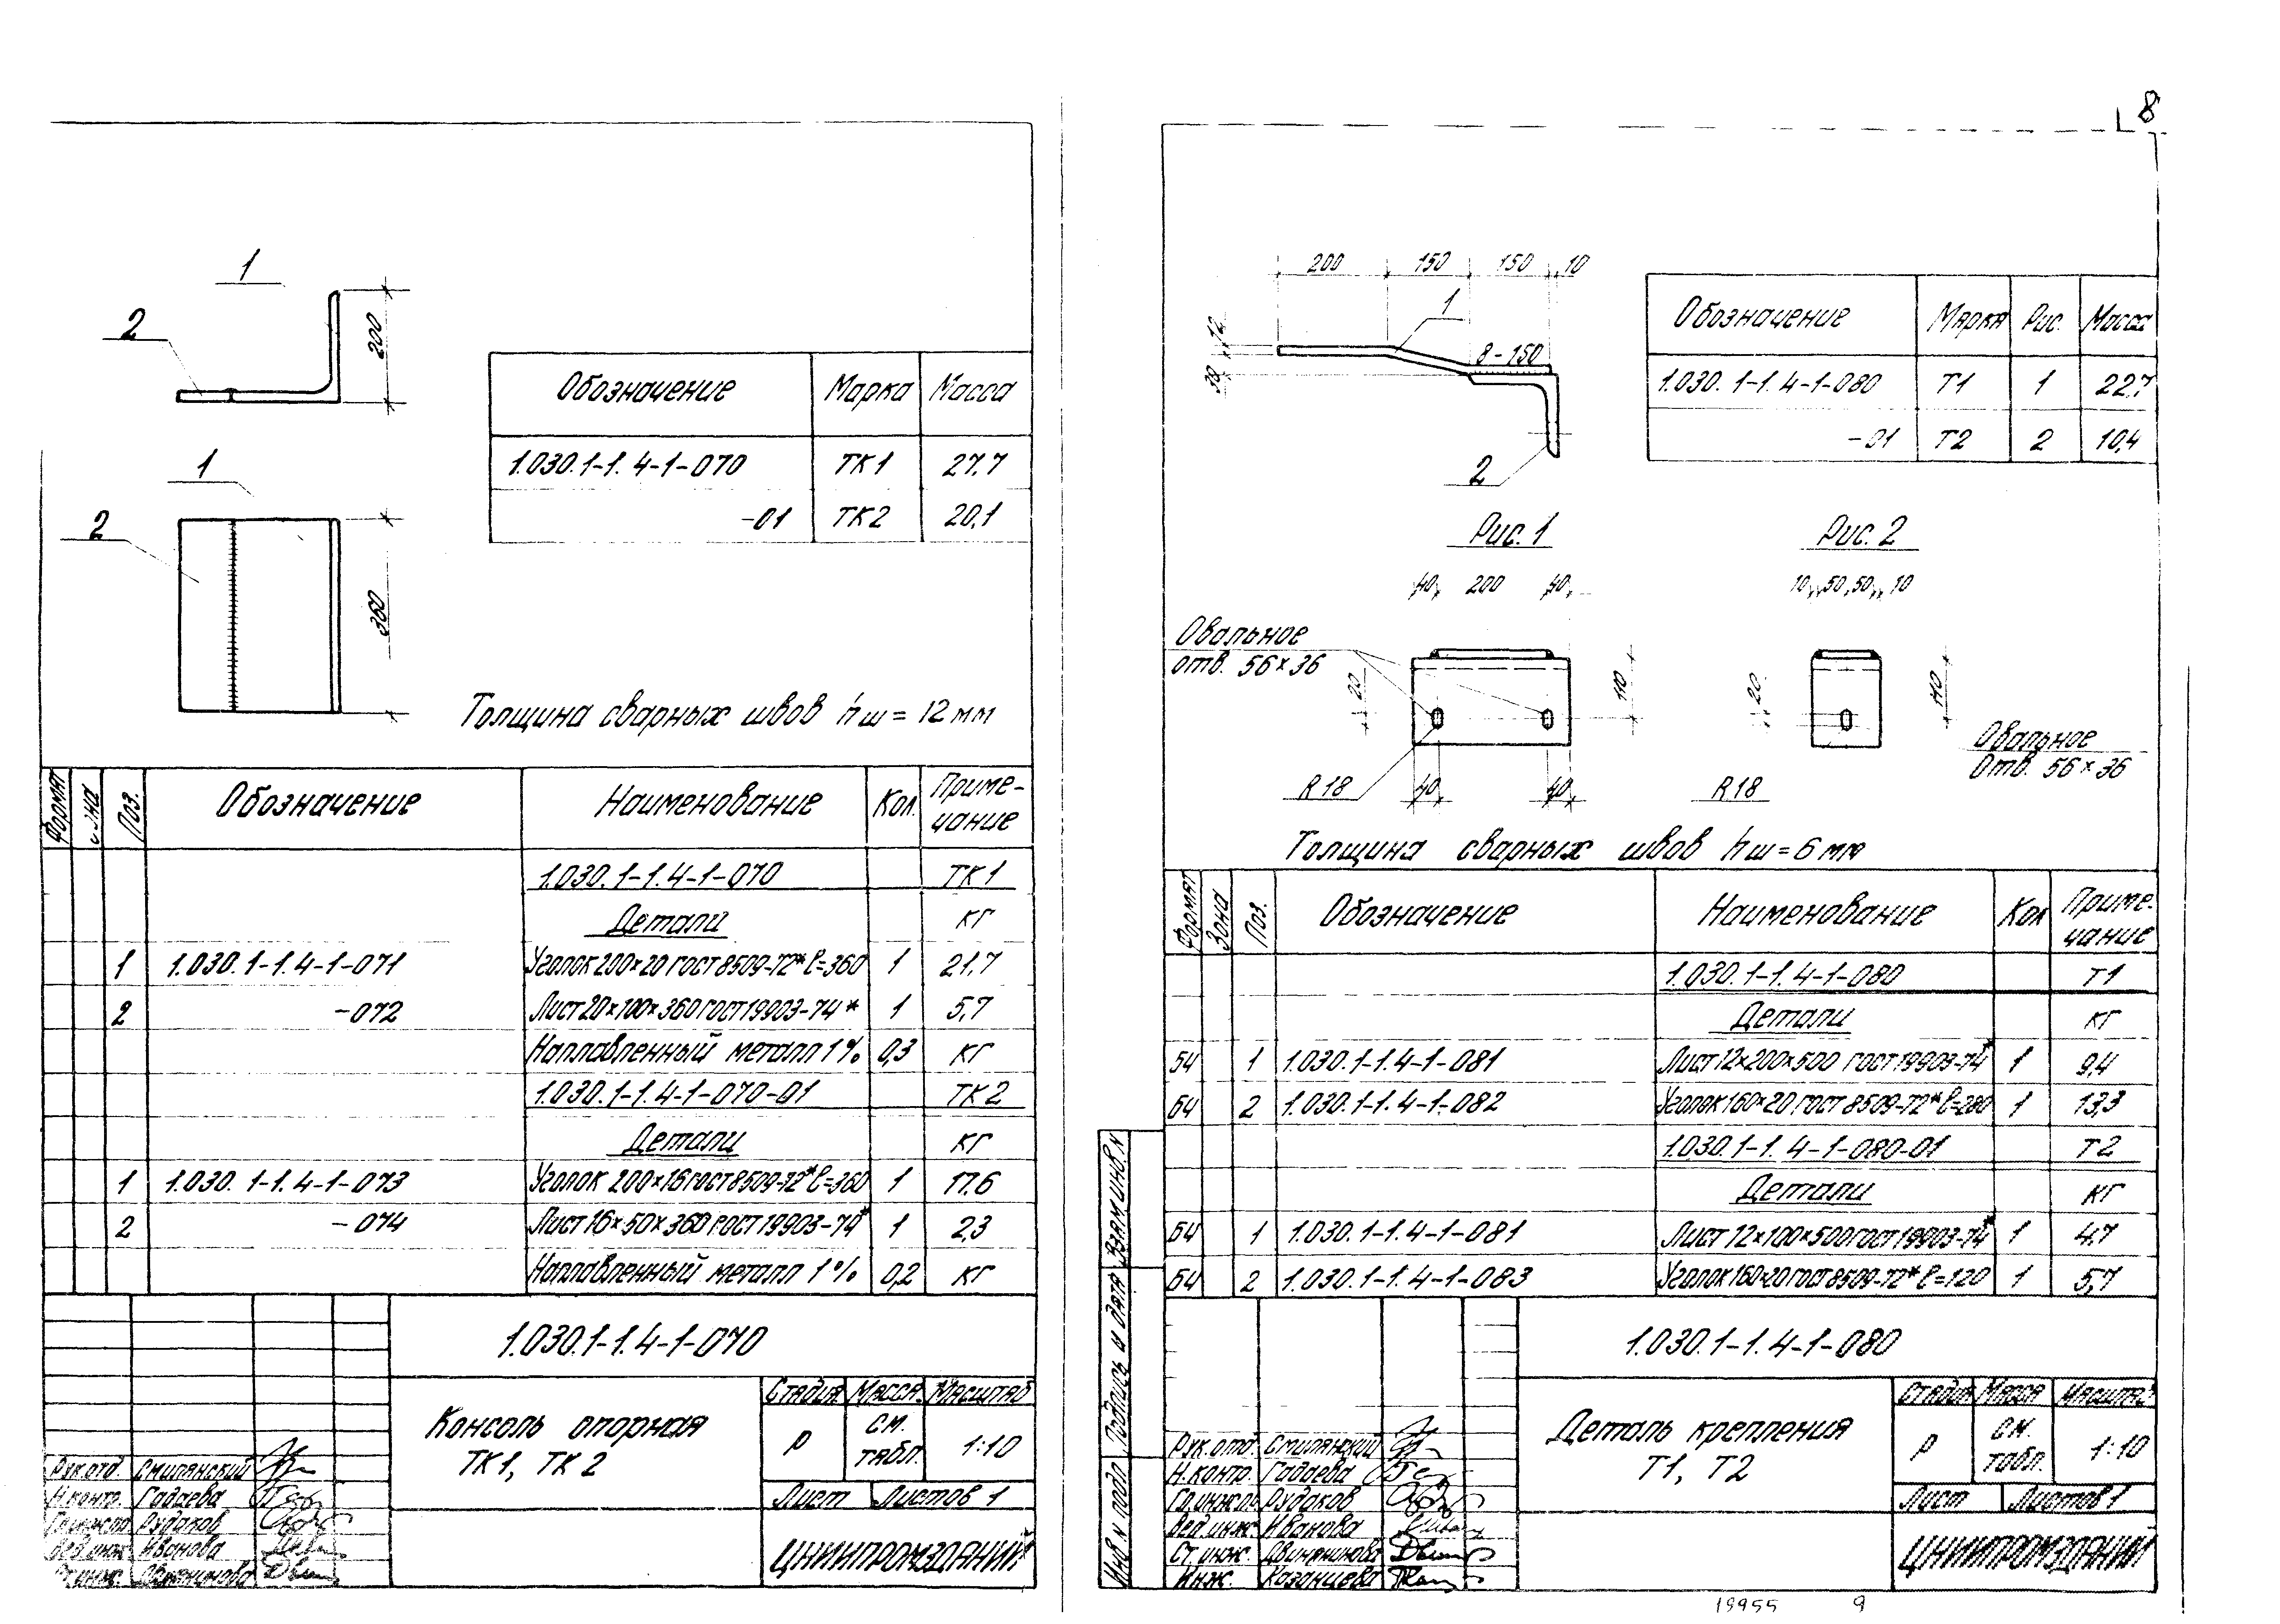 8
1
2
200
1
2
360
Обозначение Марка Масса
1.030.1-1.4-1-070 ТК1 27.7
-01 ТК2 20,1
Толщина сварных швов hш = 12 мм
Формат Поз. Обозначение Наименование Кол. Приме-
чание
1.030.1-1.4-1-070 ТК1
Детали кг
1 1.030.1-1.4-1-071 Уголок 200×20 ГОСТ 8509-72* ℓ=360 1 21,7
2 -072 Лист 20×100×360 ГОСТ 19903-74* 1 5,7
Наплавленный металл 1% 0,3 кг
1.030.1-1.4-1-070-01 ТК2
Детали кг
1 1.030.1-1.4-1-073 Уголок 200×16 ГОСТ 8509-72* ℓ=360 1 17.6
2 -074 Лист 16×50×360 ГОСТ 19903-74* 1 2,3
Наплавленный металл 1% 0,2 кг
1.030.1-1.4-1-070
Консоль опорная
ТК1, ТК2
Стадия Масса Масштаб
Р см. табл. 1:10
Лист Листов 1
ЦНИИПРОМЗДАНИЙ
Рук.отд. Смилянский
Н.контр. Гадаева
Рудаков
Вед.инж. Иванова
200 150 150 10
12
1
8-150
2
Обозначение Марка Рис. Масса
1.030.1-1.4-1-080 Т1 1 22,7
-01 Т2 2 10,4
Рис. 1 Рис. 2
40 200 40 10 50 50 10
Овальное
отв. 56×36
20 110 20 110
Овальное
Отв. 56×36
R18 40 40 R18
Толщина сварных швов hш = 6 мм
Формат Зона Поз. Обозначение Наименование Кол Приме-
чание
1.030.1-1.4-1-080 Т1
Детали кг
БЧ 1 1.030.1-1.4-1-081 Лист 12×200×500 ГОСТ 19903-74* 1 9,4
БЧ 2 1.030.1-1.4-1-082 Уголок 160×20 ГОСТ 8509-72* ℓ=280 1 13,3
1.030.1-1.4-1-080-01 Т2
Детали кг
БЧ 1 1.030.1-1.4-1-081 Лист 12×100×500 ГОСТ 19903-74* 1 4.7
БЧ 2 1.030.1-1.4-1-083 Уголок 160×20 ГОСТ 8509-72* ℓ=120 1 5,7
Взам инв. N
Подпись и дата
Инв. N подл.
1.030.1-1.4-1-080
Деталь крепления
Т1, Т2
Стадия Масса Масштаб
Р см. табл. 1:10
Лист Листов 1
ЦНИИПРОМЗДАНИЙ
Рук.отд. Смилянский
Н.контр. Гадаева
Рудаков
Вед.инж. Иванова
Ст.инж.
Инж. Казанцева
19955 9